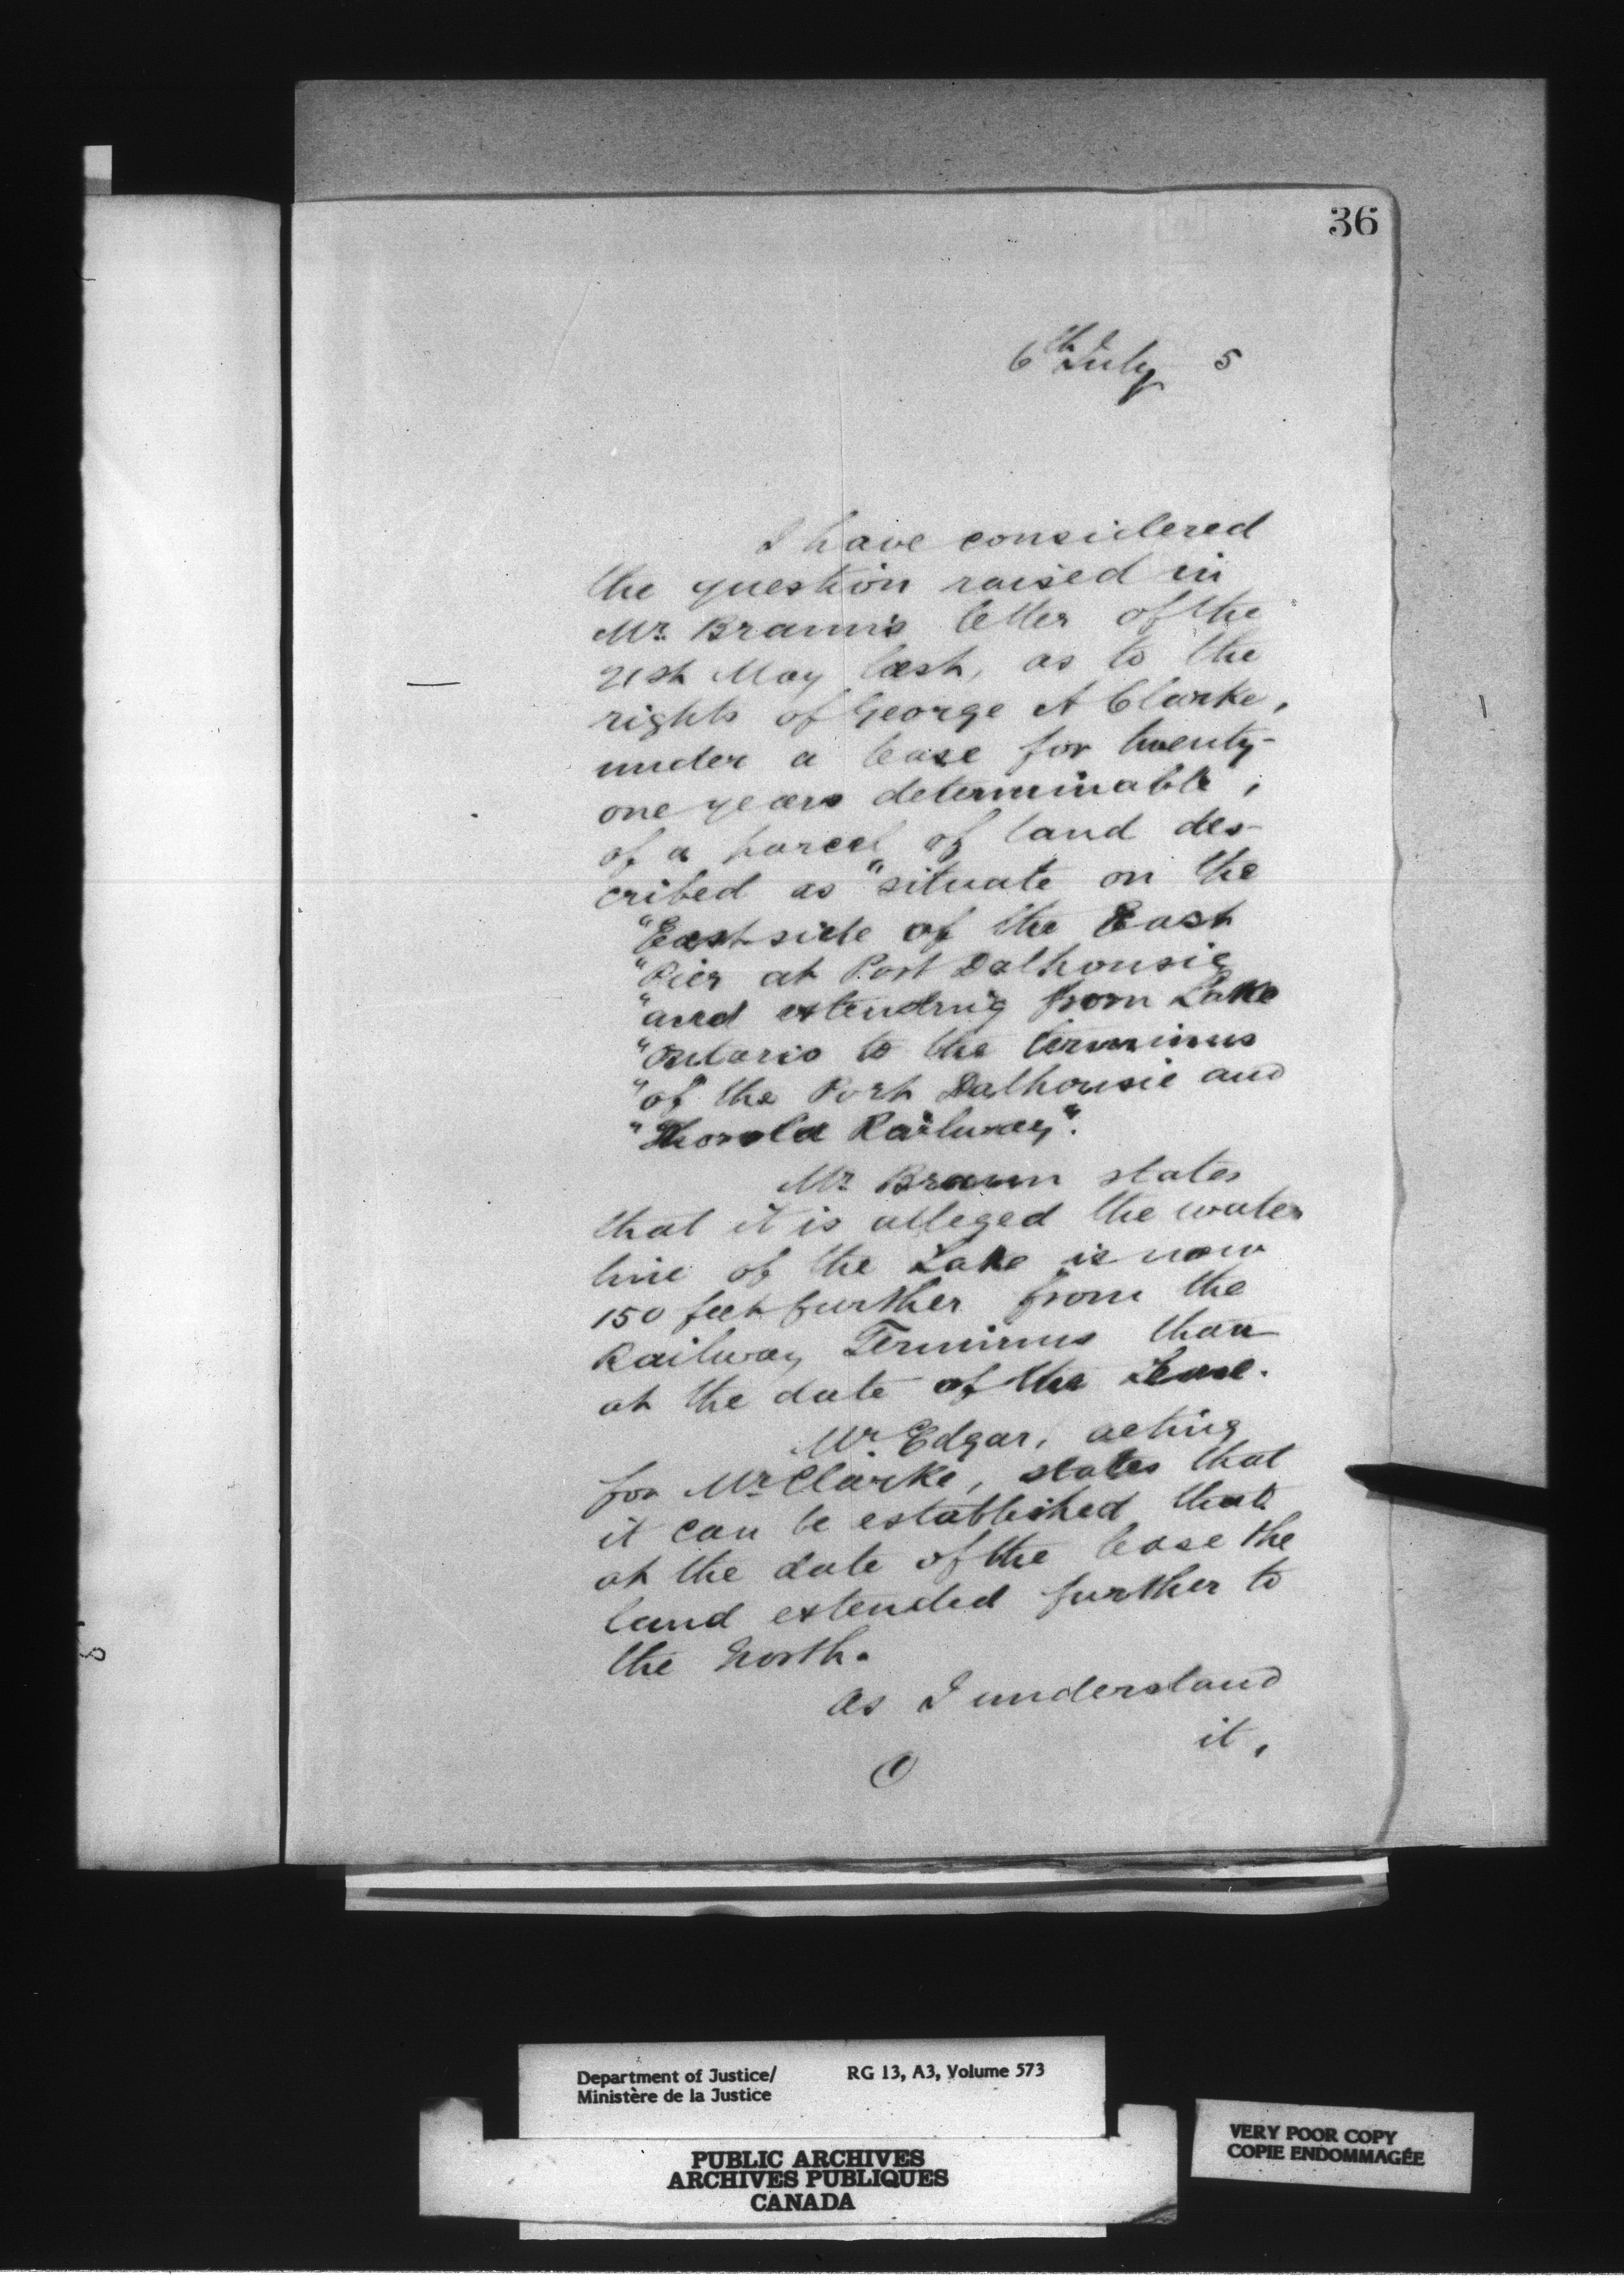 36
6th July 5
I have considered
the question raised in
Mr. Braun's letter of the
21st May last, as to the
rights of George A Clarke,
under a lease for twenty-
one years determinable,
of a parcel of land des-
cribed as "situate on the
"East side of the East
"Pier at Port Dalhousie
"and extending from Lake
"Ontario to the terminus
"of the Port Dalhousie and
"Thorold Railway".
Mr. Braun states
that it is alleged the water
line of the Lake is now
150 feet further from the
Railway Terminus than
at the date of the Lease.
Mr. Edgar, acting
for Mr. Clarke, states that
it can be established that
at the date of the lease the
land extended further to
the North.
As I understand
it,
Department of Justice/
Ministère de la Justice
RG 13, A3, Volume 573
PUBLIC ARCHIVES
ARCHIVES PUBLIQUES
CANADA
VERY POOR COPY
COPIE ENDOMMAGÉE